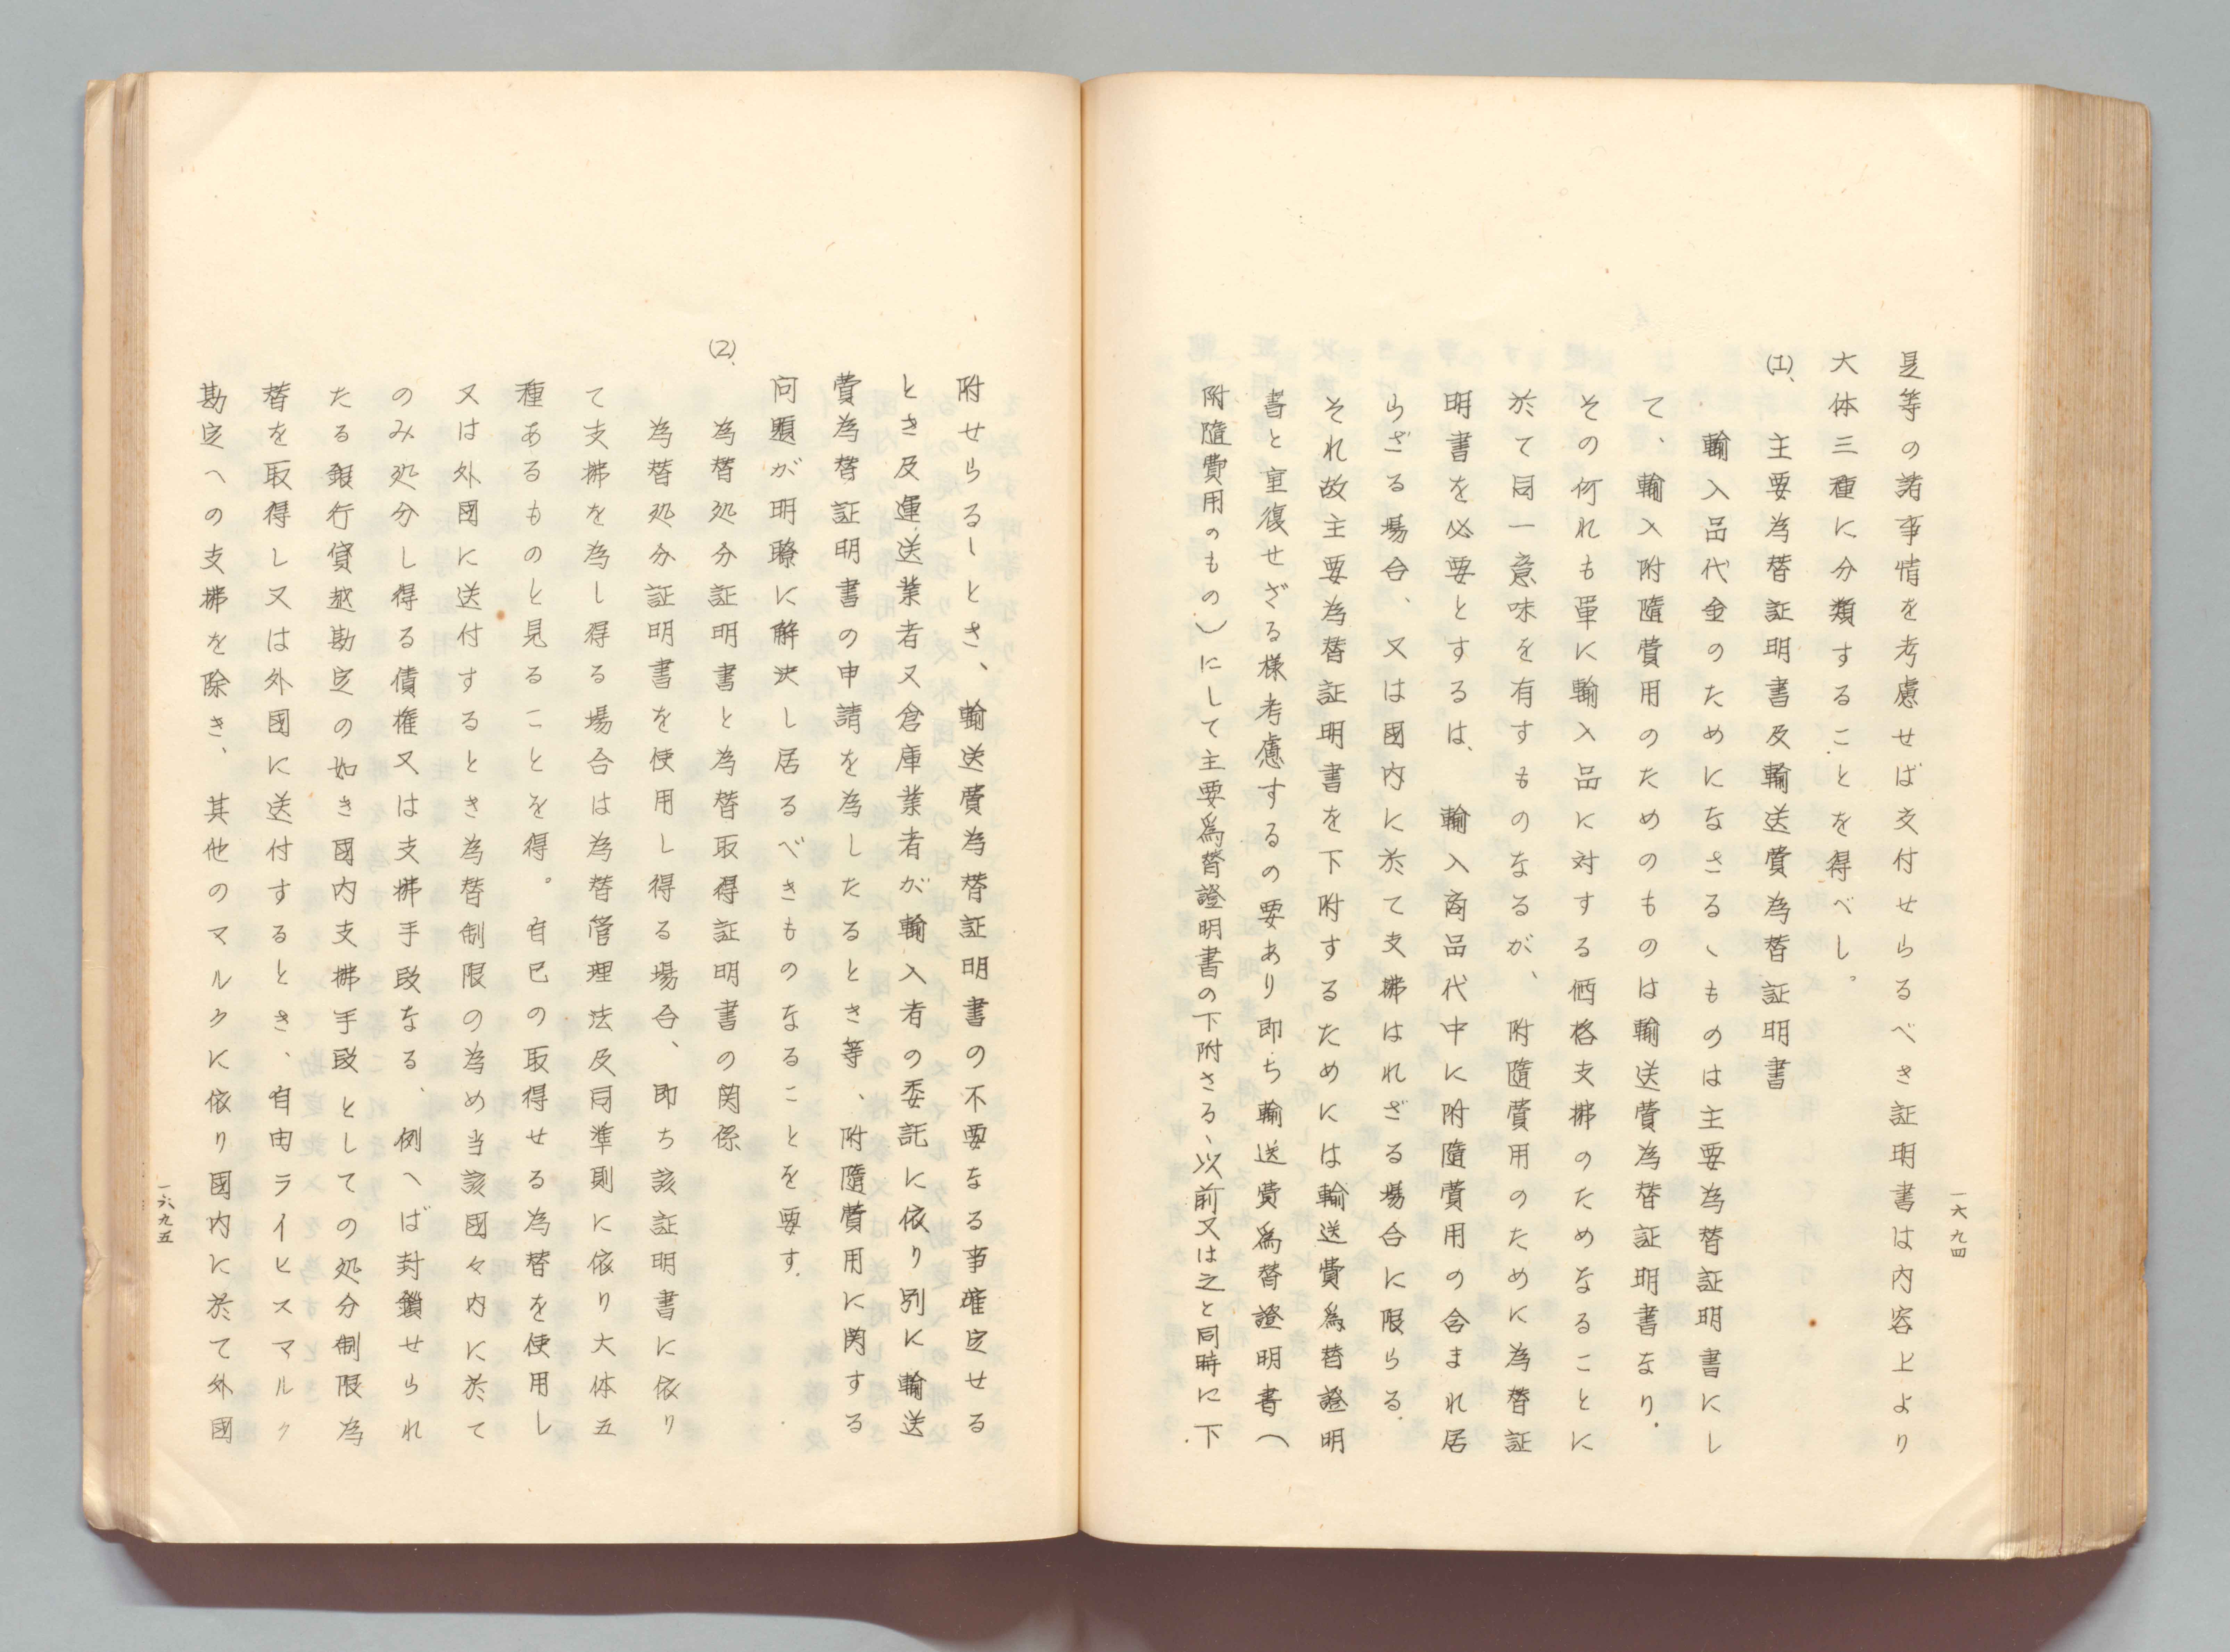 是等の諸事情を考慮せば支付せらるべき証明書は内容上より
大体三種に分類することを得べし。
(1)、主要為替証明書及輸送費為替証明書
輸入品代金のためになさるゝものは主要為替証明書にし
て、輸入附隨費用のためのものは輸送費為替証明書なり。
その何れも単に輸入品に対する価格支拂のためなることに
於て同一意味を有すものなるが、附隨費用のために為替証
明書を必要とするは、輸入商品代中に附隨費用の含まれ居
らざる場合、又は國内に於て支拂はれざる場合に限らる。
それ故主要為替証明書を下附するためには輸送費為替證明
書と重復せざる様考慮するの要あり即ち輸送費為替證明書(
附隨費用のもの)にして主要為替證明書の下附さるゝ以前又は之と同時に下
一六九四
附せらるゝとき、輸送費為替証明書の不要なる事確定せる
とき及運送業者又倉庫業者が輸入者の委託に依り別に輸送
費為替証明書の申請を為したるとき等、附隨費用に関する
問題が明瞭に解決し居るべきものなることを要す。
(2)、為替処分証明書と為替取得証明書の関係
為替処分証明書を使用し得る場合、即ち該証明書に依り
て支拂を為し得る場合は為替管理法及同準則に依り大体五
種あるものと見ることを得。自己の取得せる為替を使用し
又は外國に送付するとき為替制限の為め当該國々内に於て
のみ処分し得る債権又は支拂手段なる、例へば封鎖せられ
たる銀行貸越勘定の如き國内支拂手段としての処分制限為
替を取得し又は外國に送付するとき、自由ライヒスマルク
勘定への支拂を除き、其他のマルクに依り國内に於て外國
一六九五